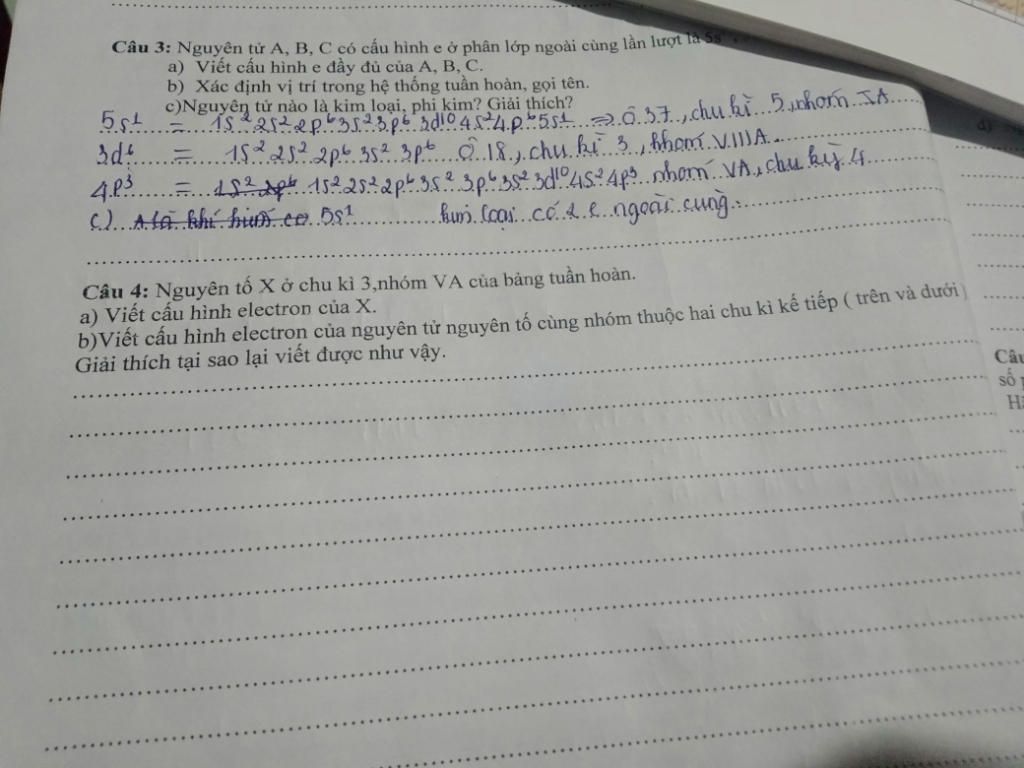 Câu 3: Nguyên tử A, B, C có cấu hình e ở phân lớp ngoài cùng lần lượt là 5s
a) Viết cấu hình e đầy đủ của A, B, C.
b) Xác định vị trí trong hệ thống tuần hoàn, gọi tên.
c)Nguyên tử nào là kim loại, phi kim? Giải thích?
5s¹ = 1s² 2s² 2p⁶ 3s² 3p⁶ 3d¹⁰ 4s² 4p⁶ 5s¹ => Ô 37, chu kì 5, nhóm IA
3d⁶ = 1s² 2s² 2p⁶ 3s² 3p⁶ Ô 18, chu kì 3, nhóm VIIIA
4p³ = 1s² 2p⁶ 1s² 2s² 2p⁶ 3s² 3p⁶ 3s² 3d¹⁰ 4s² 4p³ nhóm VA, chu kỳ 4
c) A là khí 5s¹ kim loại có 1 e ngoài cùng.
Câu 4: Nguyên tố X ở chu kì 3,nhóm VA của bảng tuần hoàn.
a) Viết cấu hình electron của X.
b)Viết cấu hình electron của nguyên tử nguyên tố cùng nhóm thuộc hai chu kì kế tiếp ( trên và dưới)
Giải thích tại sao lại viết được như vậy.
d)
Câu
số